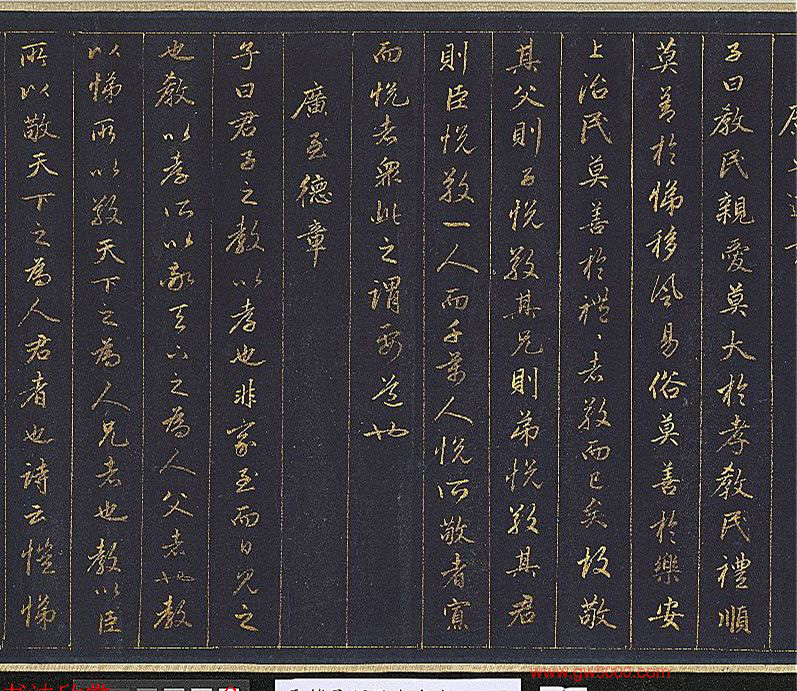 子曰教民親愛莫大於孝教民禮順
莫善於悌移風易俗莫善於樂安
上治民莫善於禮、者敬而已矣故敬
其父則子悅敬其兄則弟悅敬其君
則臣悅敬一人而千萬人悅所敬者寡
而悅者衆此之謂要道也
廣至德章
子曰君子之教以孝也非家至而日見之
也教以孝所以敬天下之為人父者也教
以悌所以敬天下之為人兄者也教以臣
所以敬天下之為人君者也詩云愷悌